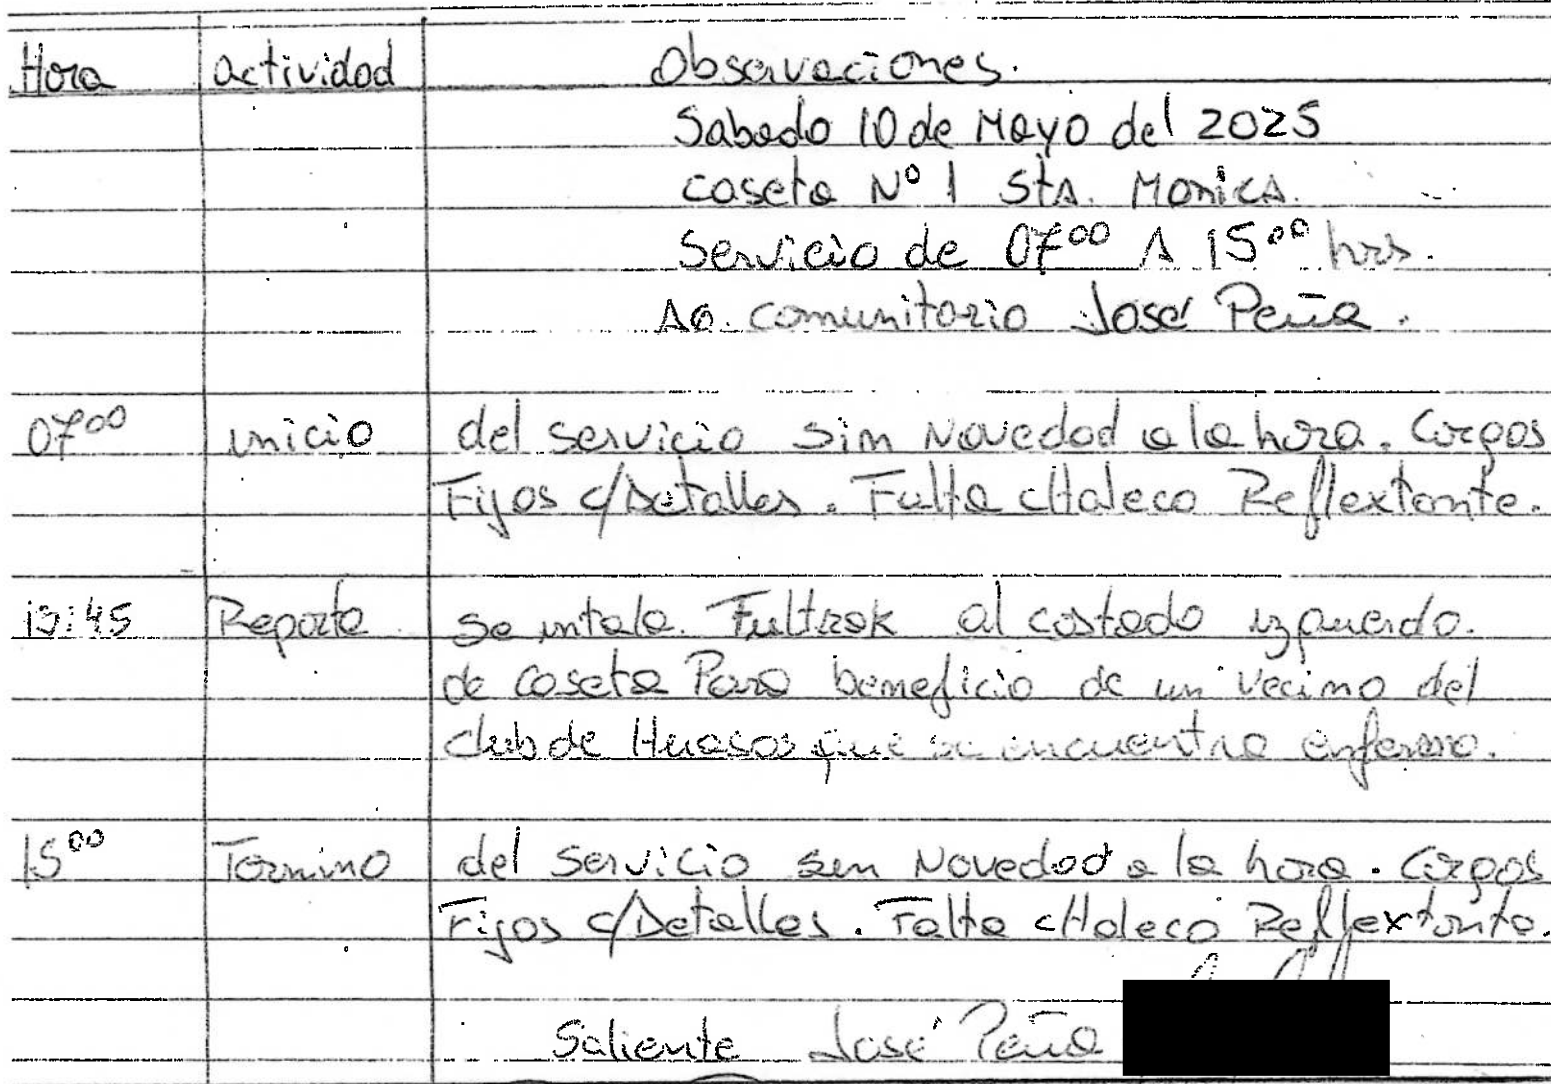 Hora actividad Observaciones.
Sabado 10 de Mayo del 2025
caseta N° 1 Sta. Monica.
Servicio de 07⁰⁰ A 15⁰⁰ hrs.
Ag. comunitario José Peña.
07⁰⁰ inicio del servicio sin Novedad a la hora. Cargos
Fijos c/Detalles. Falta cHaleco Reflextante.
Reporte se intala Fultrak al costado izquierdo.
de caseta Para beneficio de un vecino del
club de Huasos que se encuentra enfermo.
15⁰⁰ Termino del servicio sin Novedad a la hora. Cargos
Fijos c/Detalles. Falta cHaleco Reflextante.
Saliente José Peña